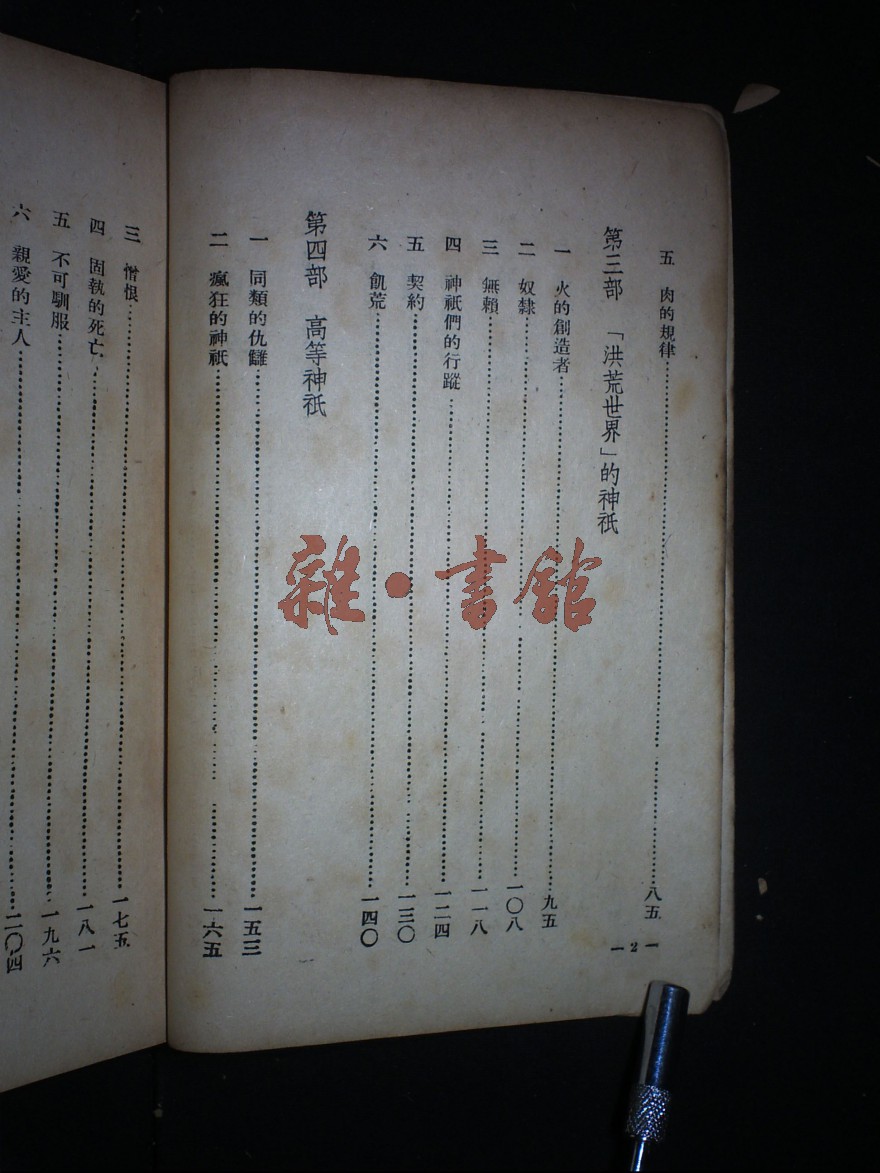 五 肉的規律……八五
第三部 「洪荒世界」的神祇
一 火的創造者……九五
二 奴隸……一〇八
三 無賴……一一八
四 神祇們的行蹤……一二四
五 契約……一三〇
六 飢荒……一四〇
第四部 高等神祇
一 同類的仇讎……一五三
二 瘋狂的神祇……一六五
— 2 —
三 憎恨……一七五
四 固執的死亡……一八一
五 不可馴服……一九六
六 親愛的主人……二〇四
雜·書館